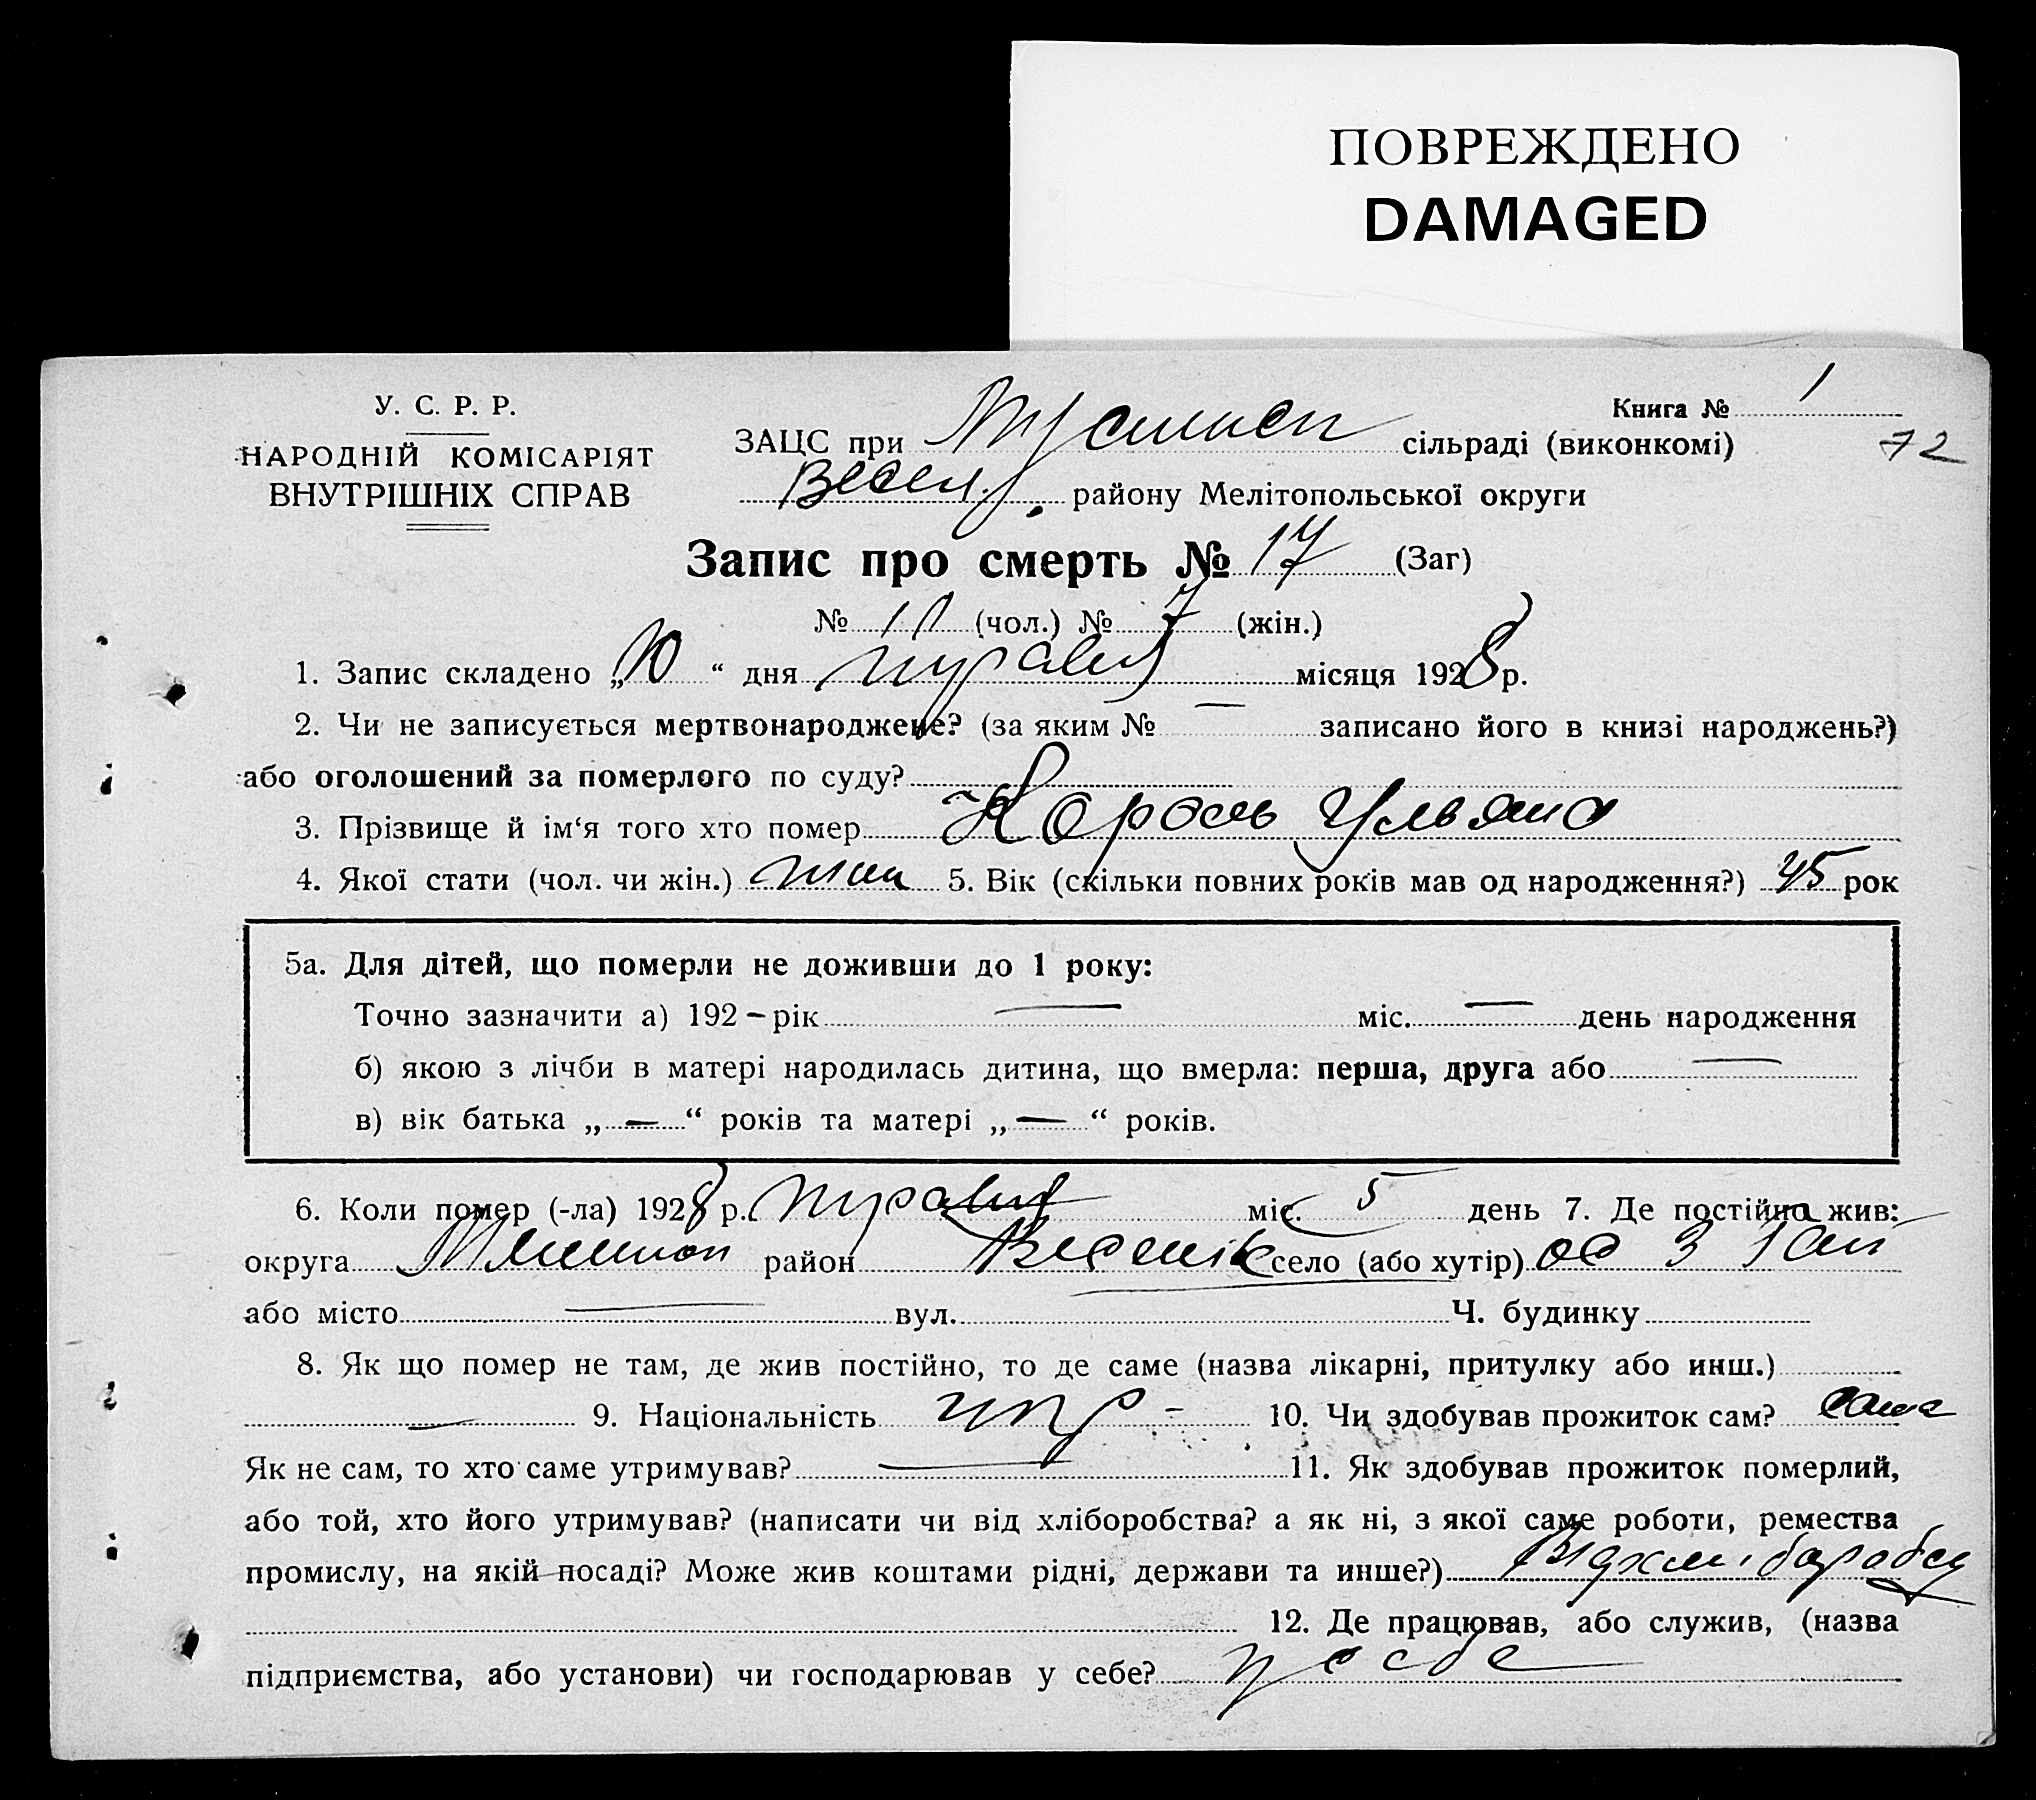 ПОВРЕЖДЕНО
DAMAGED
У. С. Р. Р.
НАРОДНІЙ КОМІСАРІЯТ
ВНУТРІШНІХ СПРАВ
Книга № 1
72
ЗАЦС при сільраді (виконкомі)
Весел. району Мелітопольської округи
Запис про смерть № 17 (Заг)
№ 10 (чол.) № 7 (жін.)
1. Запис складено „10“ дня травня місяця 1928 р.
2. Чи не записується мертвонароджене? (за яким № — записано його в книзі народжень?)
або оголошений за померлого по суду?
3. Прізвище й ім‘я того хто помер Король Ульяна
4. Якої стати (чол. чи жін.) жін 5. Вік (скільки повних років мав од народження?) 45 рок
5а. Для дітей, що померли не доживши до 1 року:
Точно зазначити а) 192 – рік — міс. — день народження
б) якою з лічби в матері народилась дитина, що вмерла: перша, друга або —
в) вік батька „—“ років та матері „—“ років.
6. Коли помер (-ла) 1928 р. травня міс. 5 день 7. Де постійно жив:
округа район село (або хутір)
або місто — вул. Ч. будинку
8. Як що помер не там, де жив постійно, то де саме (назва лікарні, притулку або инш.)
— 9. Національність укр - 10. Чи здобував прожиток сам? сама
Як не сам, то хто саме утримував? — 11. Як здобував прожиток померлий,
або той, хто його утримував? (написати чи від хліборобства? а як ні, з якої саме роботи, ремества
промислу, на якій посаді? Може жив коштами рідні, держави та инше?)
12. Де працював, або служив, (назва
підприємства, або установи) чи господарював у себе? у себе